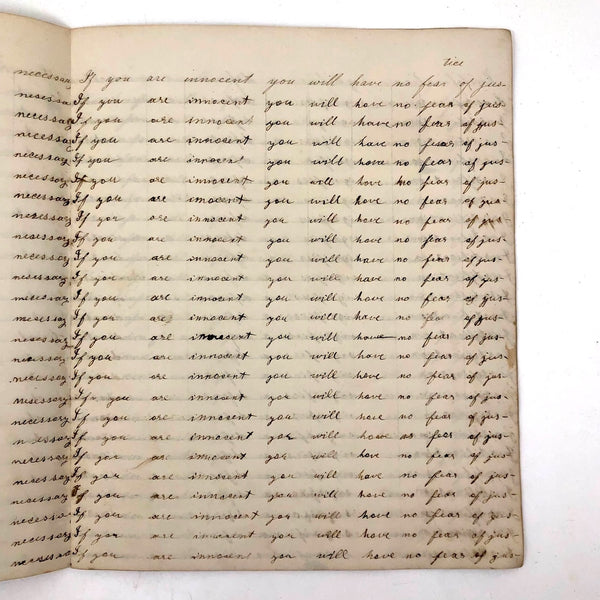 necessary
necessa
necessary
necessary
necessary
necessary
necessary
necessary
necessary
necessary
necessary
necessary
necessary
necessary
necessary
necessary
necessary
necessary
necessary
necessary
necessary
necessary
necessa
necessary
necessa
tice
If you are innocent you will have no fear of jus-
If you are innocent you will have no fear of jus-
If you are innocent you will have no fear of jus-
If you are innocent you will have no fear of jus-
If you are innocent you will have no fear of jus-
If you are innocent you will have no fear of jus-
If you are innocent you will have no fear of jus-
If you are innocent you will have no fear of jus-
If you are innocent you will have no fear of jus-
If you are innocent you will have no fear of jus-
If you are innocent you will have no fear of jus-
If you are innocent you will have no fear of jus-
If you are innocent you will have no fea of jus-
If you are innocent you will have no fear of jus-
If you are innocent you will have no fear of jus-
If you are innocent you will have no fear of jus-
If you are innocent you will have no fear of jus-
If you are innocent you will have no fear of jus-
If you are innocent you will have no fear of jus-
If you are innocent you will have no fear of jus-
If you are innocent you will have no fear of jus-
If you are innocent you will have no fear of jus-
If you are innocent you will have no fear of jus-
If you are innocent you will have no fear of jus-
If you are innocent you will have no fear of jus-